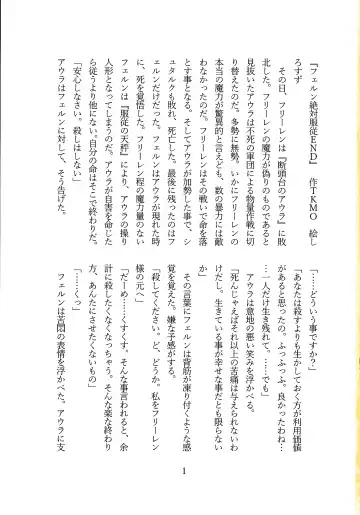 『フェルン絶対服従END』　作TKMO　絵し
ろすず
その日、フリーレンは『断頭台のアウラ』に敗
北した。フリーレンの魔力が偽りのものであると
見抜いたアウラは不死の軍団による物量作戦に切
り替えたのだ。多勢に無勢。いかにフリーレンの
本当の魔力が驚異的と言えども、数の暴力には敵
わなかったのだ。フリーレンはその戦いで命を落
とす事となる。そしてアウラが加勢した事で、シ
ュタルクも敗れ、死亡した。最後に残ったのはフ
ェルンだけだった。フェルンはアウラが現れた時
に、死を覚悟した。フリーレン程の魔力量のない
フェルンは『服従の天秤』により、アウラの操り
人形となってしまうのだ。アウラが自害を命じた
ら従うより他にない。自分の命はそこで終わりだ。
「安心しなさい。殺しはしない」
アウラはフェルンに対して、そう告げた。
「……どういう事ですか？」
「あなたは殺すよりも生かしておく方が利用価値
があると思ったの。ふっふっふ。良かったわね…
…一人だけは生き残れて。……でも」
アウラは意地の悪い笑みを浮かべる。
「死んじゃえばそれ以上の苦痛は与えられないわ
けだし。生きている事が幸せな事だとも限らない
か」
その言葉にフェルンは背筋が凍り付くような感
覚を覚えた。嫌な予感がする。
「殺してください。ど、どうか。私をフリーレン
様の元へ」
「だーめ……くすくす。そんな事言われると、余
計に殺したくなくなっちゃう。そんな楽な終わり
方、あんたにさせたくないもの」
「……くっ」
フェルンは苦悶の表情を浮かべた。アウラに支
1